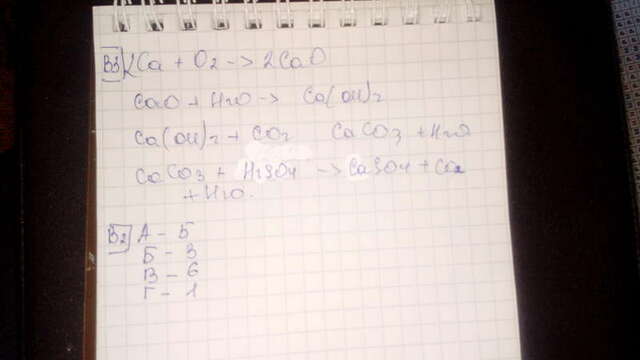 В3 2Ca + O2 -> 2CaO
CaO + H2O -> Ca(OH)2
Ca(OH)2 + CO2 CaCO3 + H2O
CaCO3 + H2SO4 -> CaSO4 + CO2
+ H2O.
В2 А - 5
Б - 3
В - 6
Г - 1